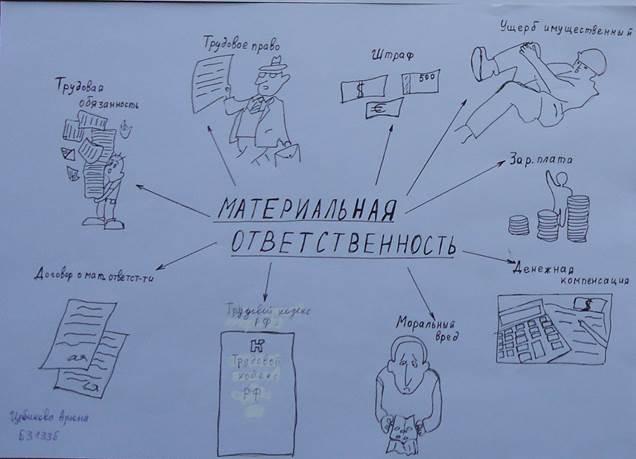 Трудовое право
Штраф
Ущерб имущественный
Трудовая
обязанность
$
500
€
Зар. плата
МАТЕРИАЛЬНАЯ
ОТВЕТСТВЕННОСТЬ
Договор о мат. ответст-ти
Трудовой кодекс
РФ
Моральный
вред
Денежная
компенсация
$
Трудовой
кодекс
РФ